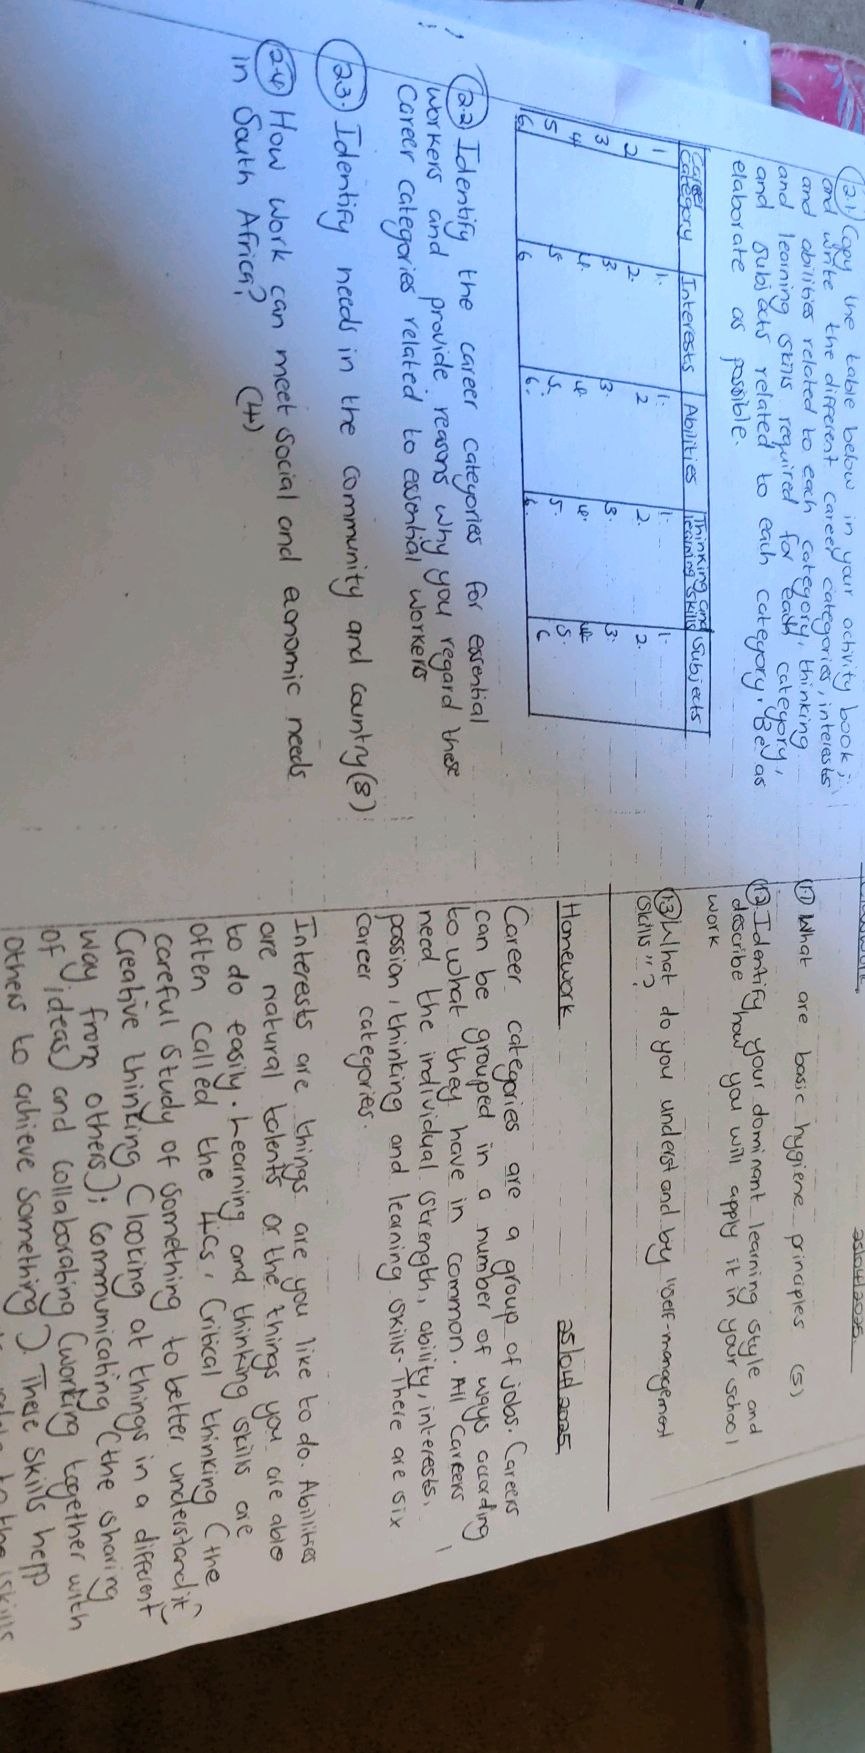 25/04/2025
1.1 What are basic hygiene principles (5)
1.2 Identify your dominant learning style and
describe how you will apply it in your school
work
1.3 What do you understand by "Self-management
Skills"?
Homework 25/04/2025
Career categories are a group of jobs. Careers
can be grouped in a number of ways according
to what they have in common. All careers
need the individual strength, ability, interests,
passion, thinking and learning skills. There are six
career categories.
Interests are things are you like to do. Abilities
are natural talents or the things you are able
to do easily. Learning and thinking skills are
often called the 4Cs, Critical thinking (the
careful study of something to better understand it)
Creative thinking (looking at things in a different
way from others); Communicating (the sharing
of ideas) and Collaborating (working together with
others to achieve something). These skills help
to the skills
2.1 Copy the table below in your activity book;
and write the different career categories, interests
and abilities related to each category, thinking
and learning skills required for each category,
and subjects related to each category. Be as
elaborate as possible.
Career Category Interests Abilities Thinking and learning skills Subjects
1 1. 1. 1. 1.
2 2. 2 2. 2.
3 3. 3. 3. 3.
4 4. 4. 4. 4.
5 5. 5. 5. 5.
6 6 6. 6. 6
2.2 Identify the career categories for essential
workers and provide reasons why you regard these
career categories related to essential workers
2.3. Identify needs in the community and country (8)
2.4 How work can meet social and economic needs
in South Africa? (4)